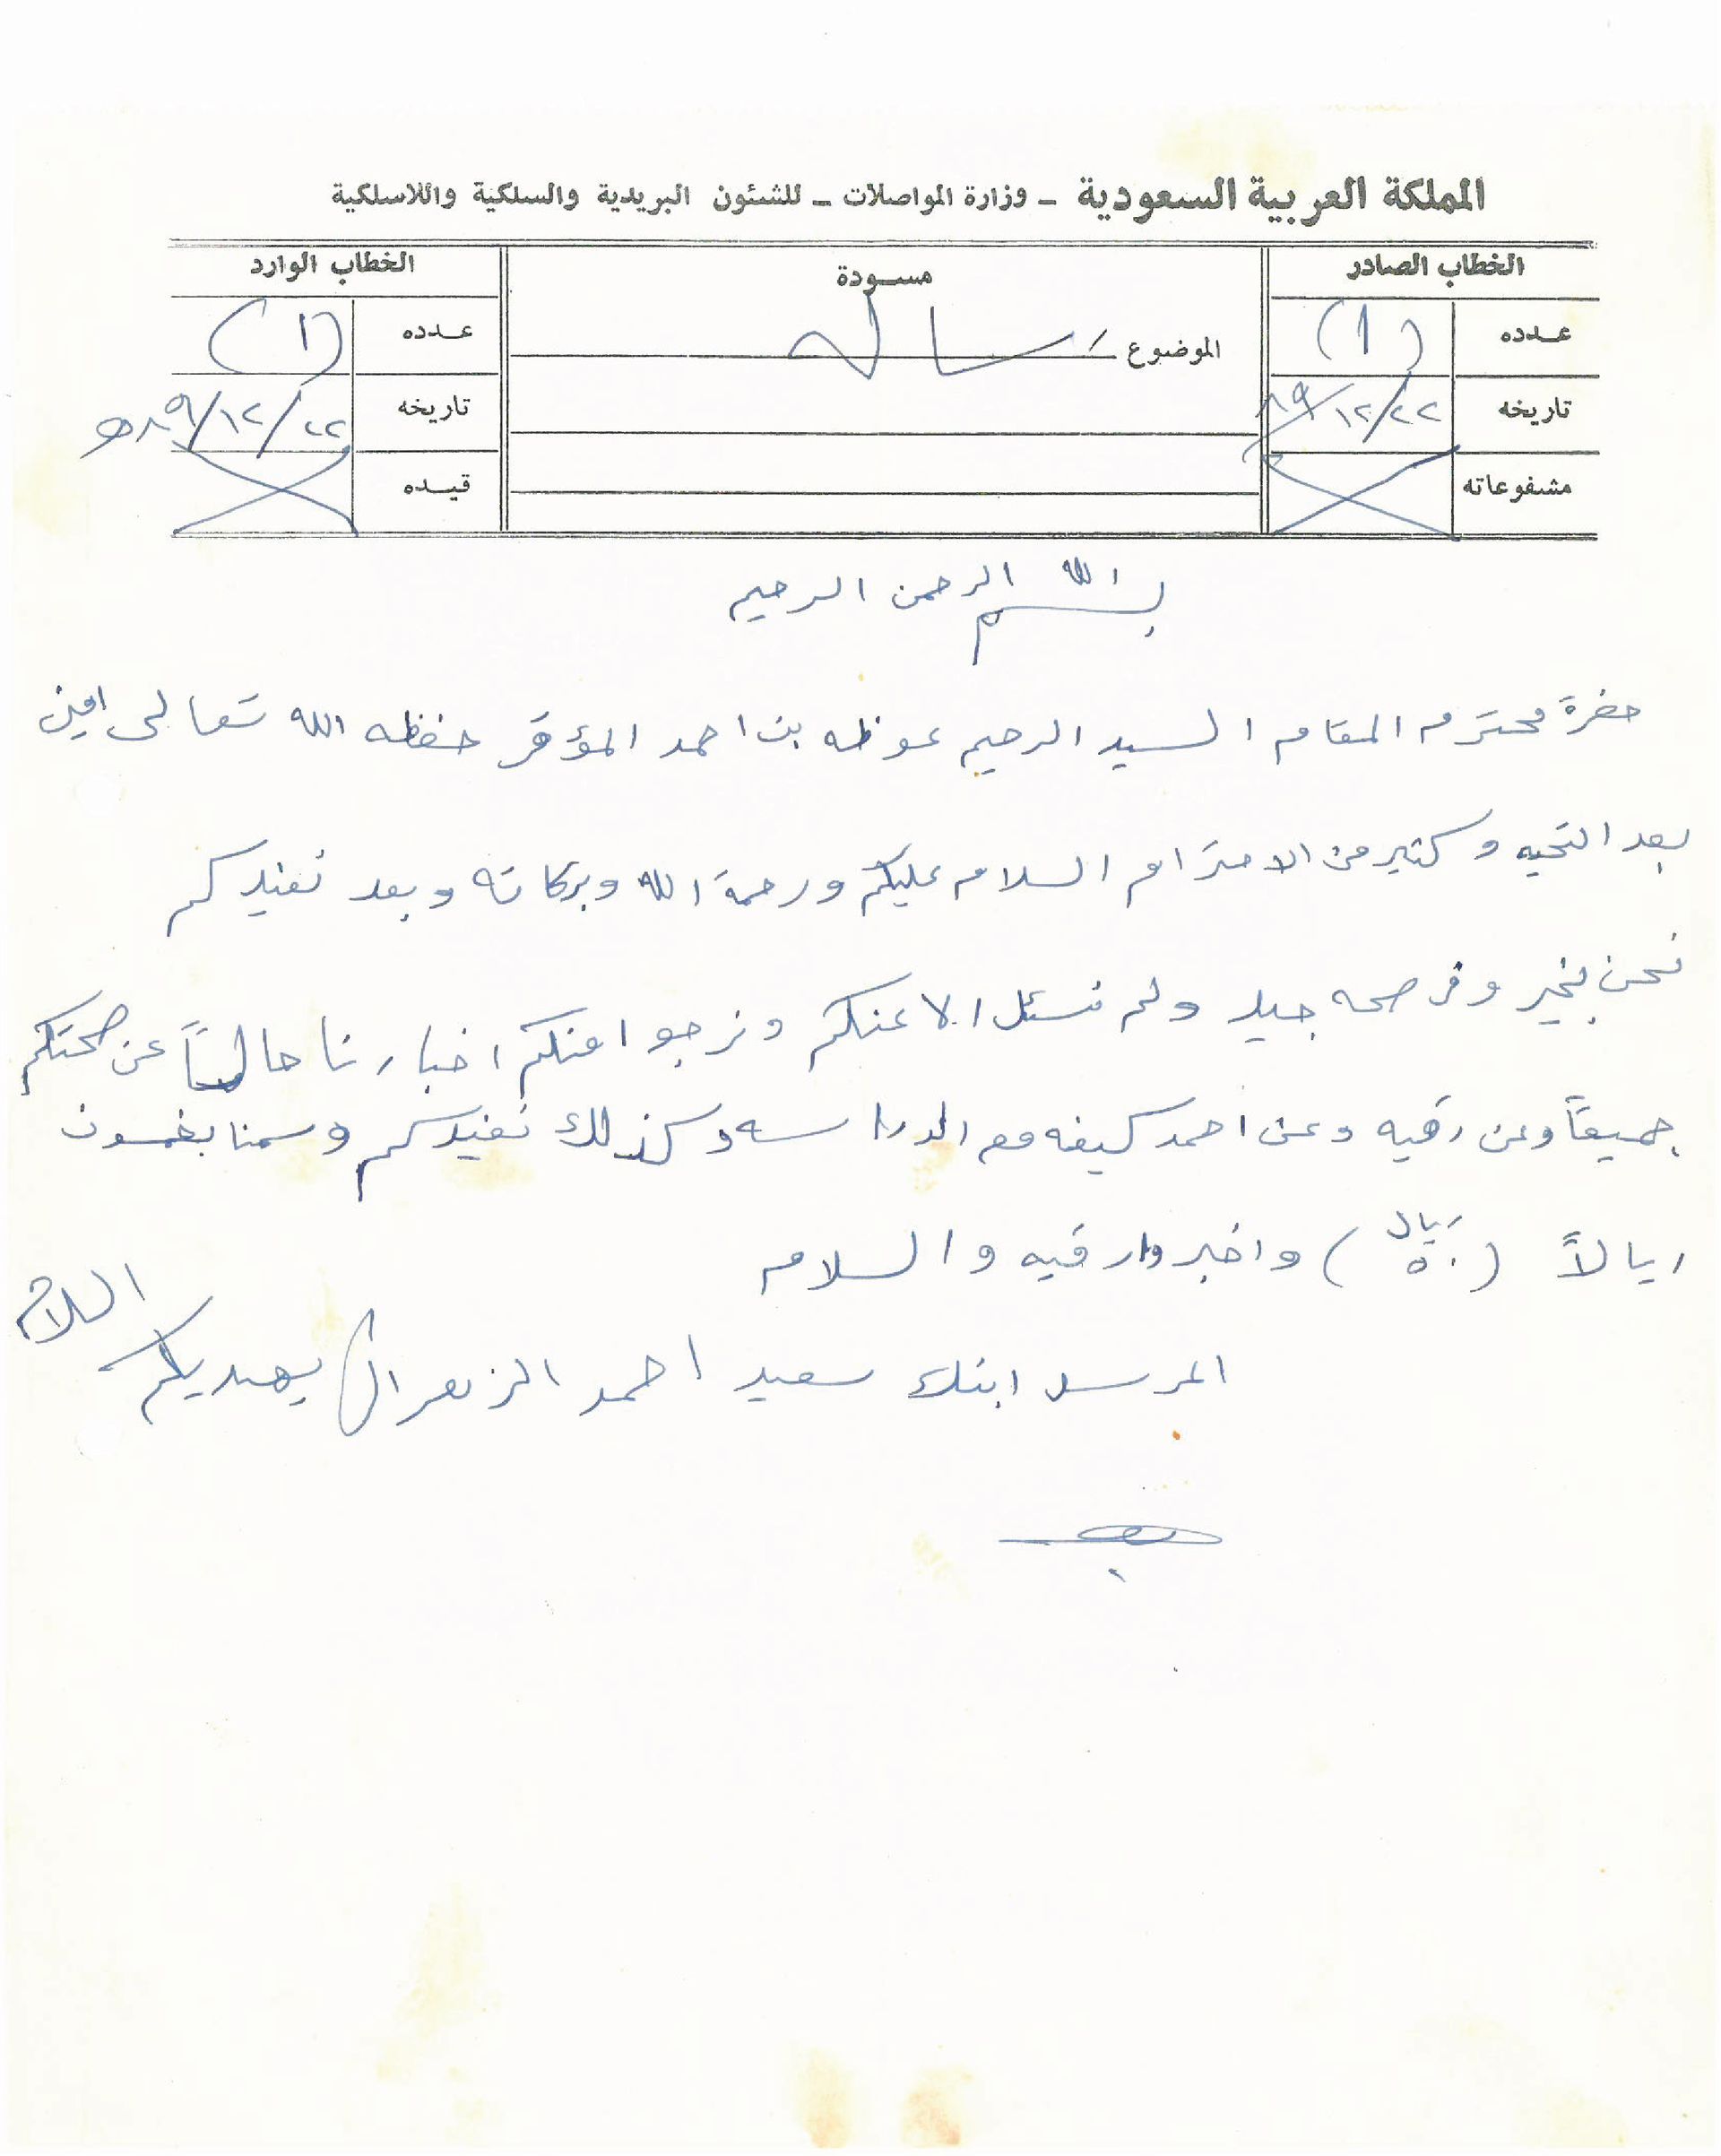 المملكة العربية السعودية ـ وزارة المواصلات ـ للشئون البريدية والسلكية واللاسلكية
الخطاب الصادر
عدده (١)
تاريخه ٢٢/١٢/٨٩
مشفوعاته
مسودة
الموضوع رساله
الخطاب الوارد
عدده (١)
تاريخه ٢٢/١٢/٨٩هـ
قيده
بسم الله الرحمن الرحيم
حضرة محترم المقام السيد الرحيم عوظه بن احمد المؤقر حفظه الله تعالى امين
بعد التحيه وكثير من الاحترام السلام عليكم ورحمة الله وبركاته وبعد نفيدكم
نحن بخير وفي صحه جيد ولم نسئل الا عنكم ونرجوا منكم اخبارنا حالياً عن صحتكم
جميعاً وعن رقيه وعن احمد كيفه مع الدراسه وكذلك نفيدكم وسمنا بخمسون
ريالاً (٥٠ ريال) واخبروا رقيه والسلام
المرسل ابنك سعيد احمد الزهراني يهديكم السلام